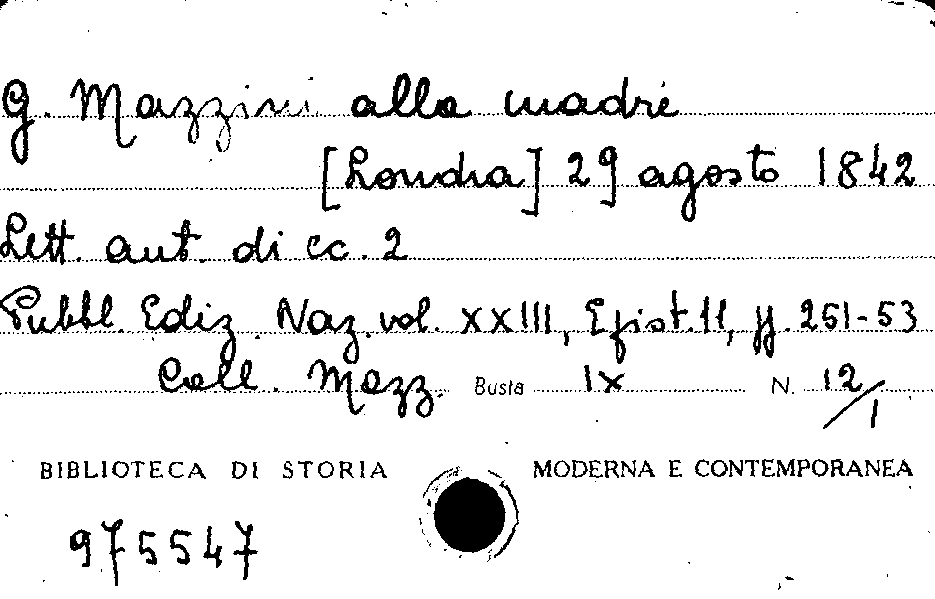 G. Mazzini alla madre
[Londra] 29 agosto 1842
Lett. aut. di cc. 2
Pubbl. Ediz. Naz. vol. XXIII, Epist. 11, pp. 251-53
Coll. Mazz. Busta IX N. 12/1
BIBLIOTECA DI STORIA MODERNA E CONTEMPORANEA
975547